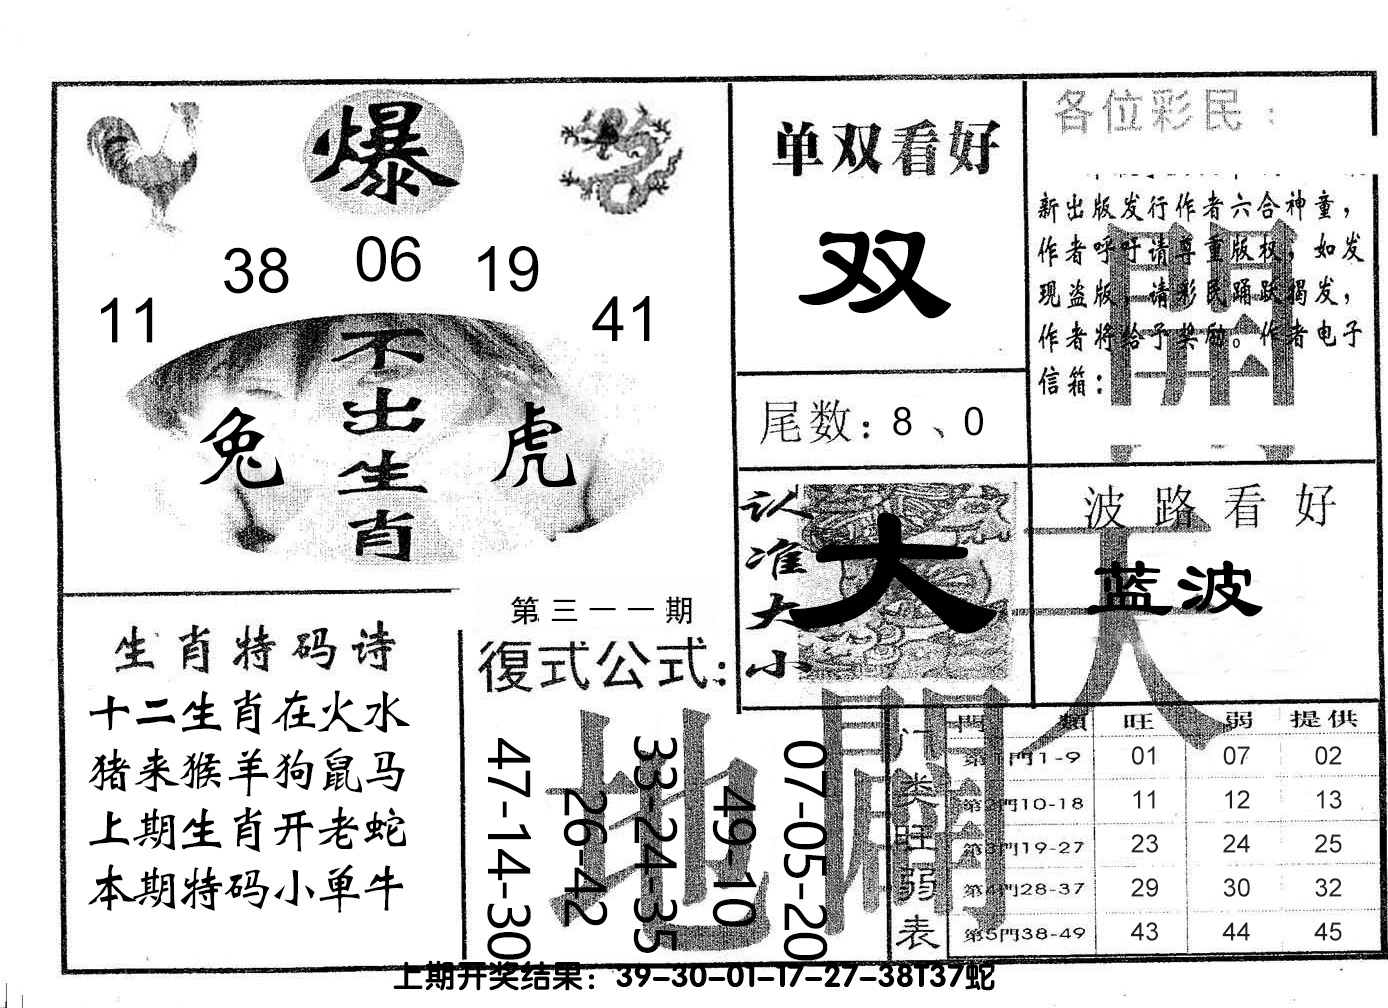 爆
11 38 06 19 41
不出生肖
兔 虎
单双看好
双
尾数：8、0
各位彩民：
新出版发行作者六合神童，
作者呼吁请尊重版权，如发
现盗版，请彩民踊跃揭发，
作者将给予奖励。作者电子
信箱：
認准大小
大
波路看好
蓝波
天
開
第三一一期
復式公式：
47-14-30
26-42
33-24-35
49-10
07-05-20
地
開
生肖特码诗
十二生肖在火水
猪来猴羊狗鼠马
上期生肖开老蛇
本期特码小单牛
门类旺弱表
門類 旺 弱 提供
第1門1-9 01 07 02
第2門10-18 11 12 13
第3門19-27 23 24 25
第4門28-37 29 30 32
第5門38-49 43 44 45
上期开奖结果：39-30-01-17-27-38T37蛇